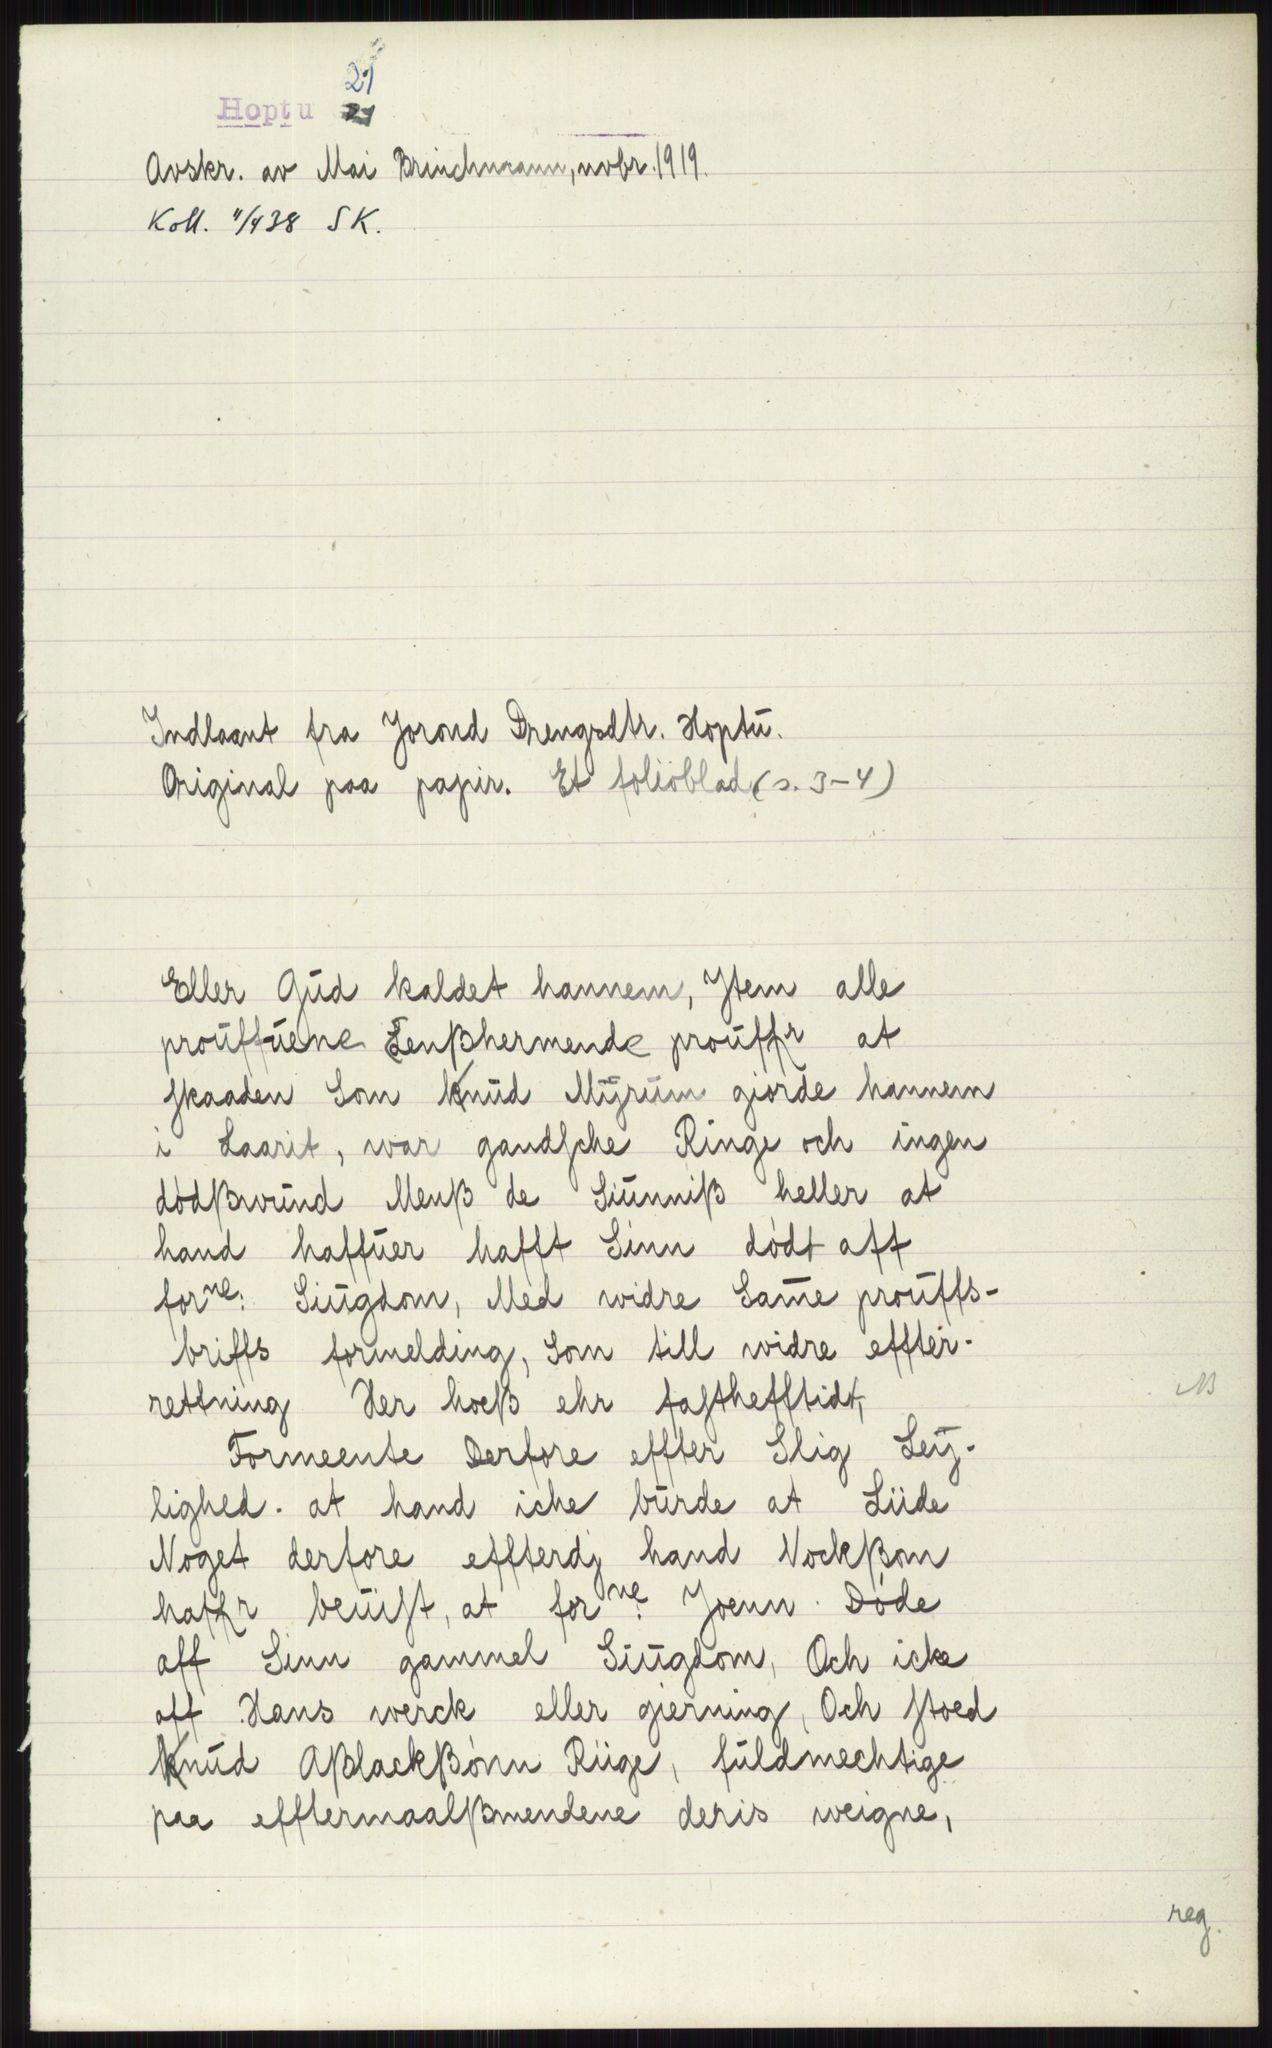 21
Hoptu 21
Avskr. av Mai Brinchmann, novbr. 1919.
Koll. 11/4 38 SK.
Indlaant fra Jorond Drengsdtr. Hoptu.
Original paa papir. Et folioblad (s. 3-4)
Eller Gud kaldet hannem, Item alle
prouffuene Lenßhermende prouffr at
skaaden Som Knud Myrum giorde hannem
i Laarit, war gandsche Ringe och ingen
dødßwund Menß de Siunniß heller at
hand haffuer hafft Sinn dødt aff
forne: Siugdom, Med widre Same prouffs-
briffs formelding, Som till widre effter-
rettning Her hoeß ehr fasthefftidt,
Formeente Derfore effter Slig Ley-
lighed. at hand iche burde at Liide
Noget derfore effterdj hand Nockßom
haffr beuist, at forne: Joenn Døde
aff Sinn gammel Siugdom, Och icke
aff Hans werck eller gierning, Och stoed
Knud Aßlackßønn Riige, fuldmechtige
paa efftermaalßmendene deris weigne,
NB
reg.